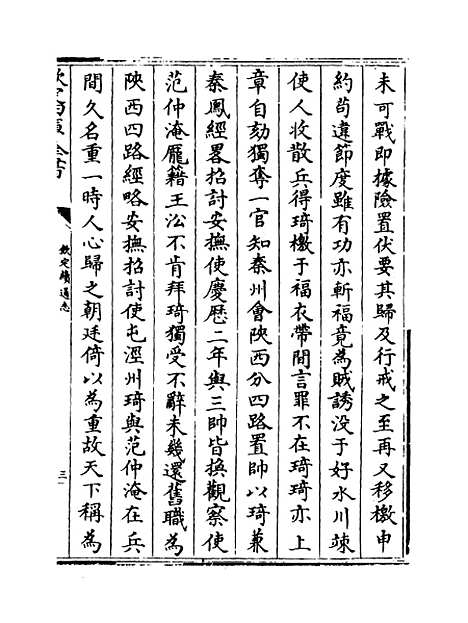 未可戰即據險置伏要其歸及行戒之至再又移檄申
約茍違節度雖有功亦斬福竟為賊誘没于好水川竦
使人收散兵得琦檄于福衣帶間言罪不在琦琦亦上
章自劾獨奪一官知秦州會陜西分四路置帥以琦兼
秦鳳經畧招討安撫使慶歷二年與三帥皆換觀察使
范仲淹龎籍王㳂不肯拜琦獨受不辭未幾還舊職為
陜西四路經略安撫招討使屯涇州琦與范仲淹在兵
間久名重一時人心歸之朝廷倚以為重故天下稱為
欽定四庫全書
欽定續通志
三